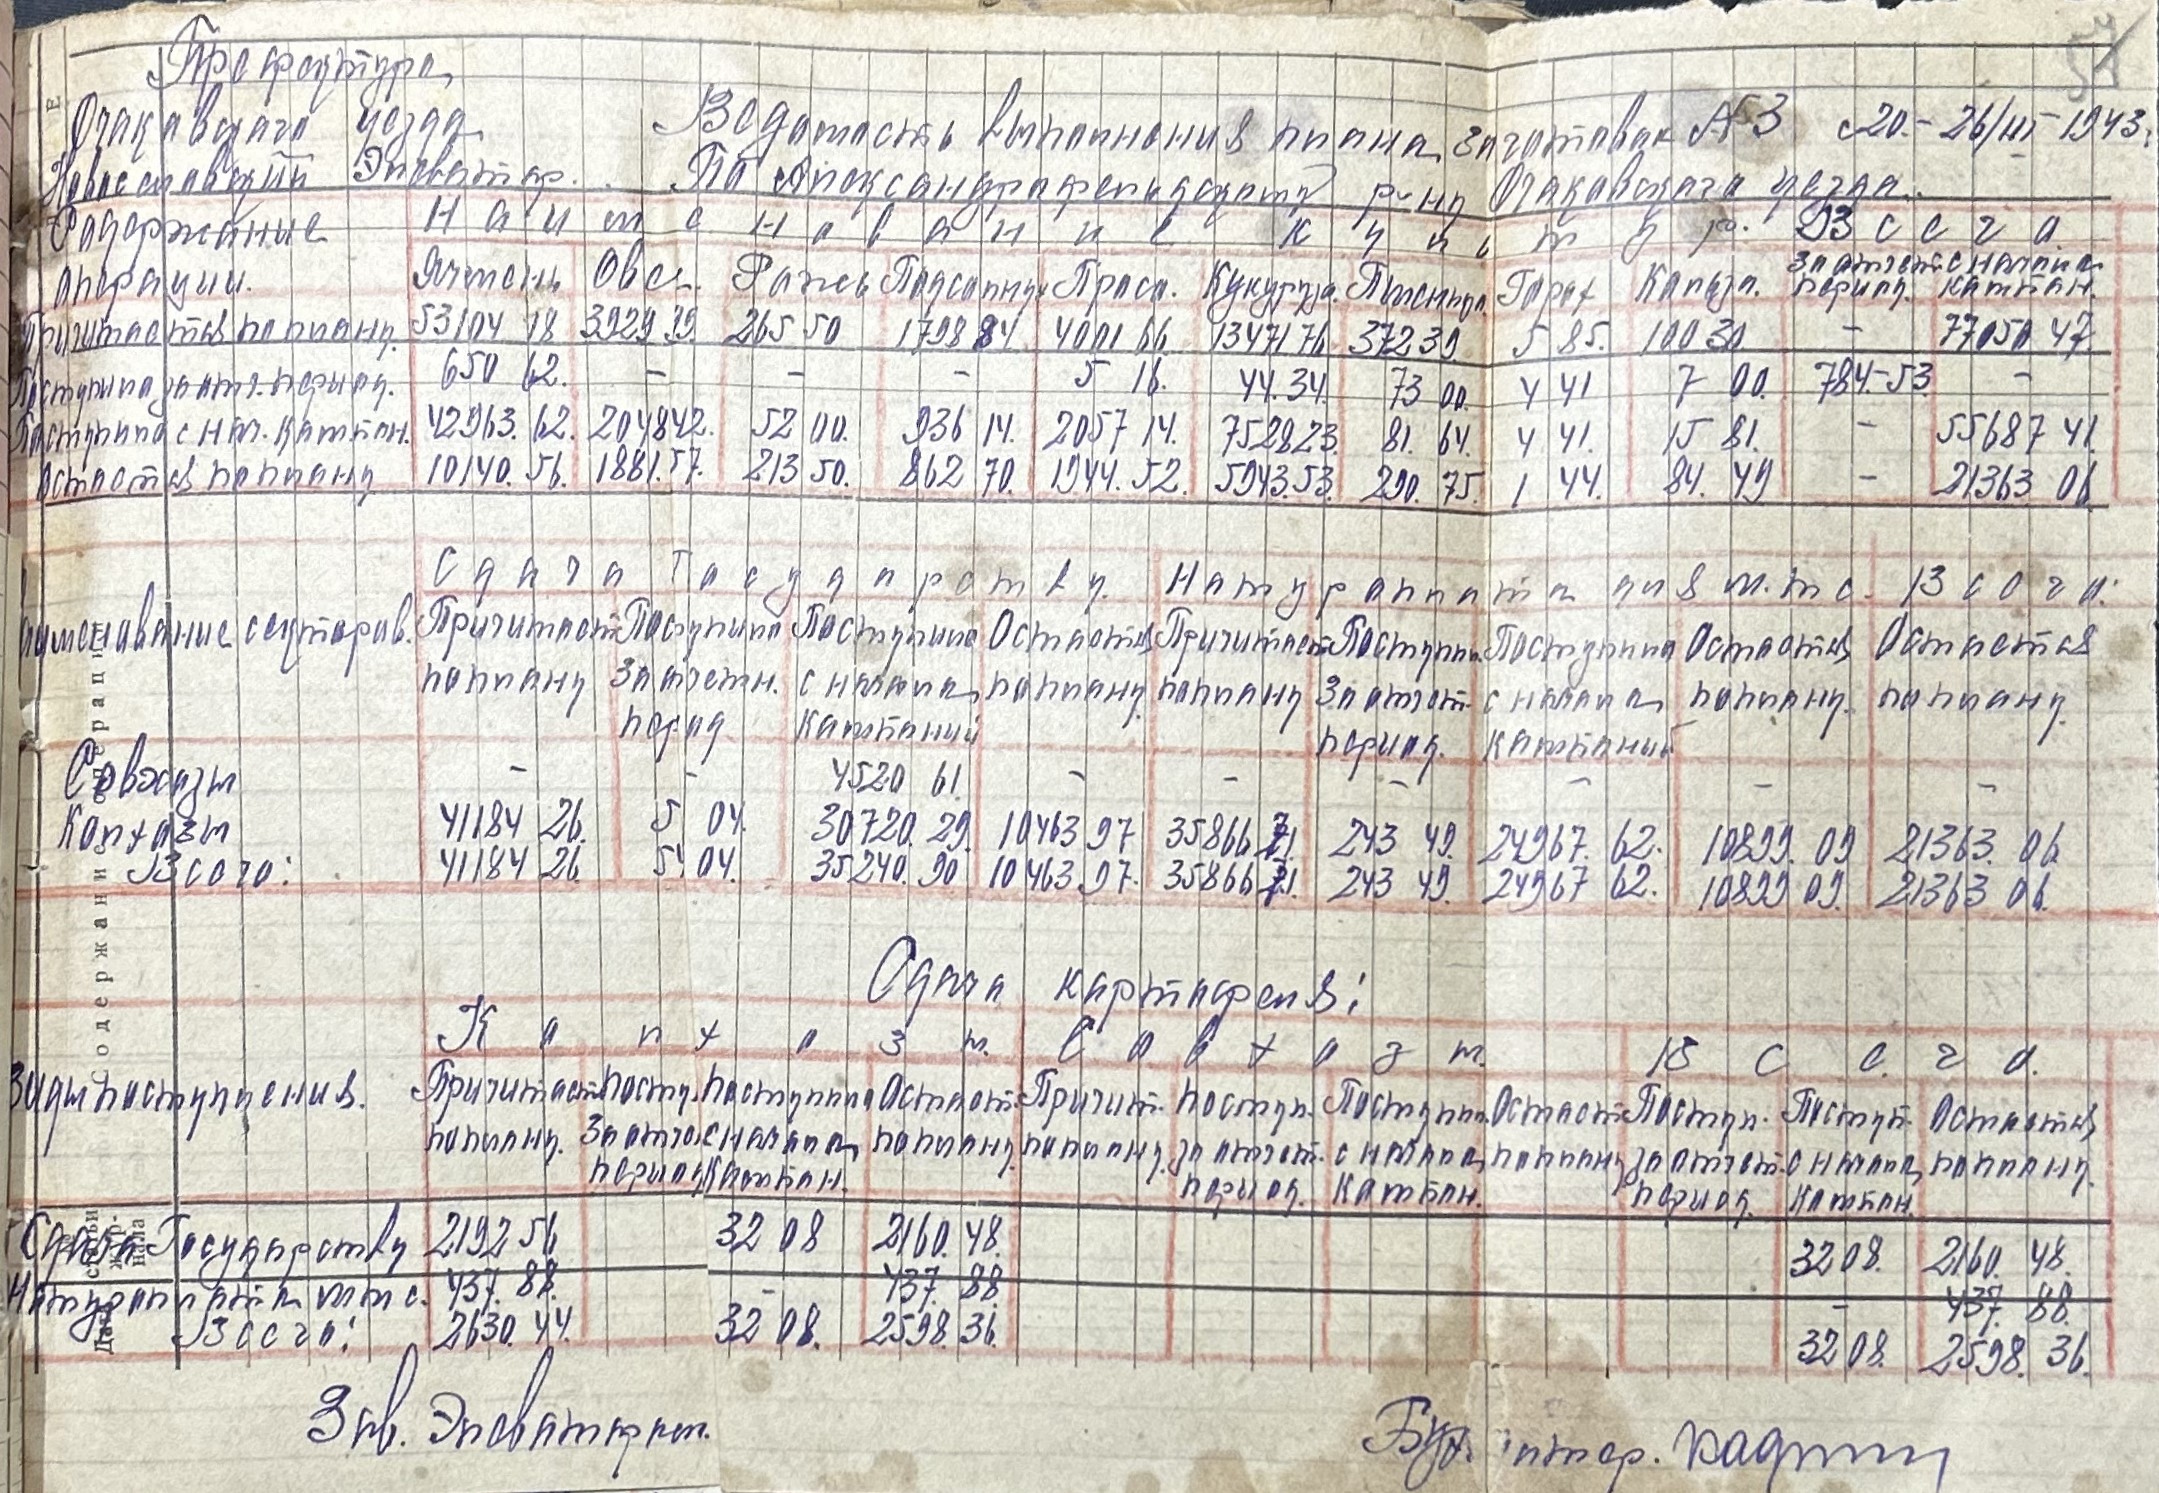 Префектура
Очаковского уезда Ведомость выполнения плана заготовок №3 с 20 - 26/III - 1943 г.
Элеватор. По Александрфельдскому р-ну Очаковского уезда.
Содержание Наименование культур. Всего
операции. Ячмень Овес. Рожь Подсолнух Просо. Кукуруза. Пшеница. Горох Кользо. За отчет. период. С начала кампан.
Причитается по плану. 53104 18 3929 39 265 50 1798 84 4001 66 13471 76 372 39 5 85. 100 30 - 77050 47
Поступило за отч. период. 650 62. - - - 5 16. 44. 34. 73 00. 4 41 7 00. 784-53 -
Поступило с нач. кампан. 42963. 62. 2048 42. 52 00. 936 14. 2057 14. 7528 23. 81. 64. 4 41. 15 81. - 55687 41.
Остается по плану 10140. 56. 1881. 57. 213 50. 862 70. 1944. 52. 5943. 53. 290. 75. 1 44. 84. 49 - 21363 06.
Сдача Государству. Натуроплата для М.Т.С. Всего:
Наименование секторов. Причитает. по плану Поступило за отчетн. период Поступило с начала кампаний Остается по плану. Причитает. по плану Поступил. за отчет. период. Поступило с начала кампаний Остается по плану. Остается по плану.
Совхозы - - 4520 61. - - - - - -
Колхозы 41184 26. 5 04. 30720. 29. 10463. 97 35866 71 243 49. 24967. 62. 10899. 09 21363. 06.
Всего: 41184 26. 5 04. 35240. 90 10463. 97. 35866 71. 243 49. 24967 62. 10899 09. 21363 06.
Сдача картофеля:
Колхозы. Совхозы. Всего.
Виды поступления. Причитает. по плану. Поступ. за отчет. период Поступило с начала кампан. Остает. по плану. Причит. по плану. Поступ. за отчет. период. Поступил. с начала кампан. Остает. по плану Поступ. за отчет. период. Поступ. с начала кампан. Остается по плану.
Сдача Государству 2192 56 32 08 2160. 48. 32 08. 2160. 48.
Натуроплата МТС. 437. 88. - 437. 88. - 437. 88.
Всего: 2630. 44. 32 08. 2598. 36. 32 08. 2598. 36.
Зав. Элеватором. Бухгалтер.
Содержание операции